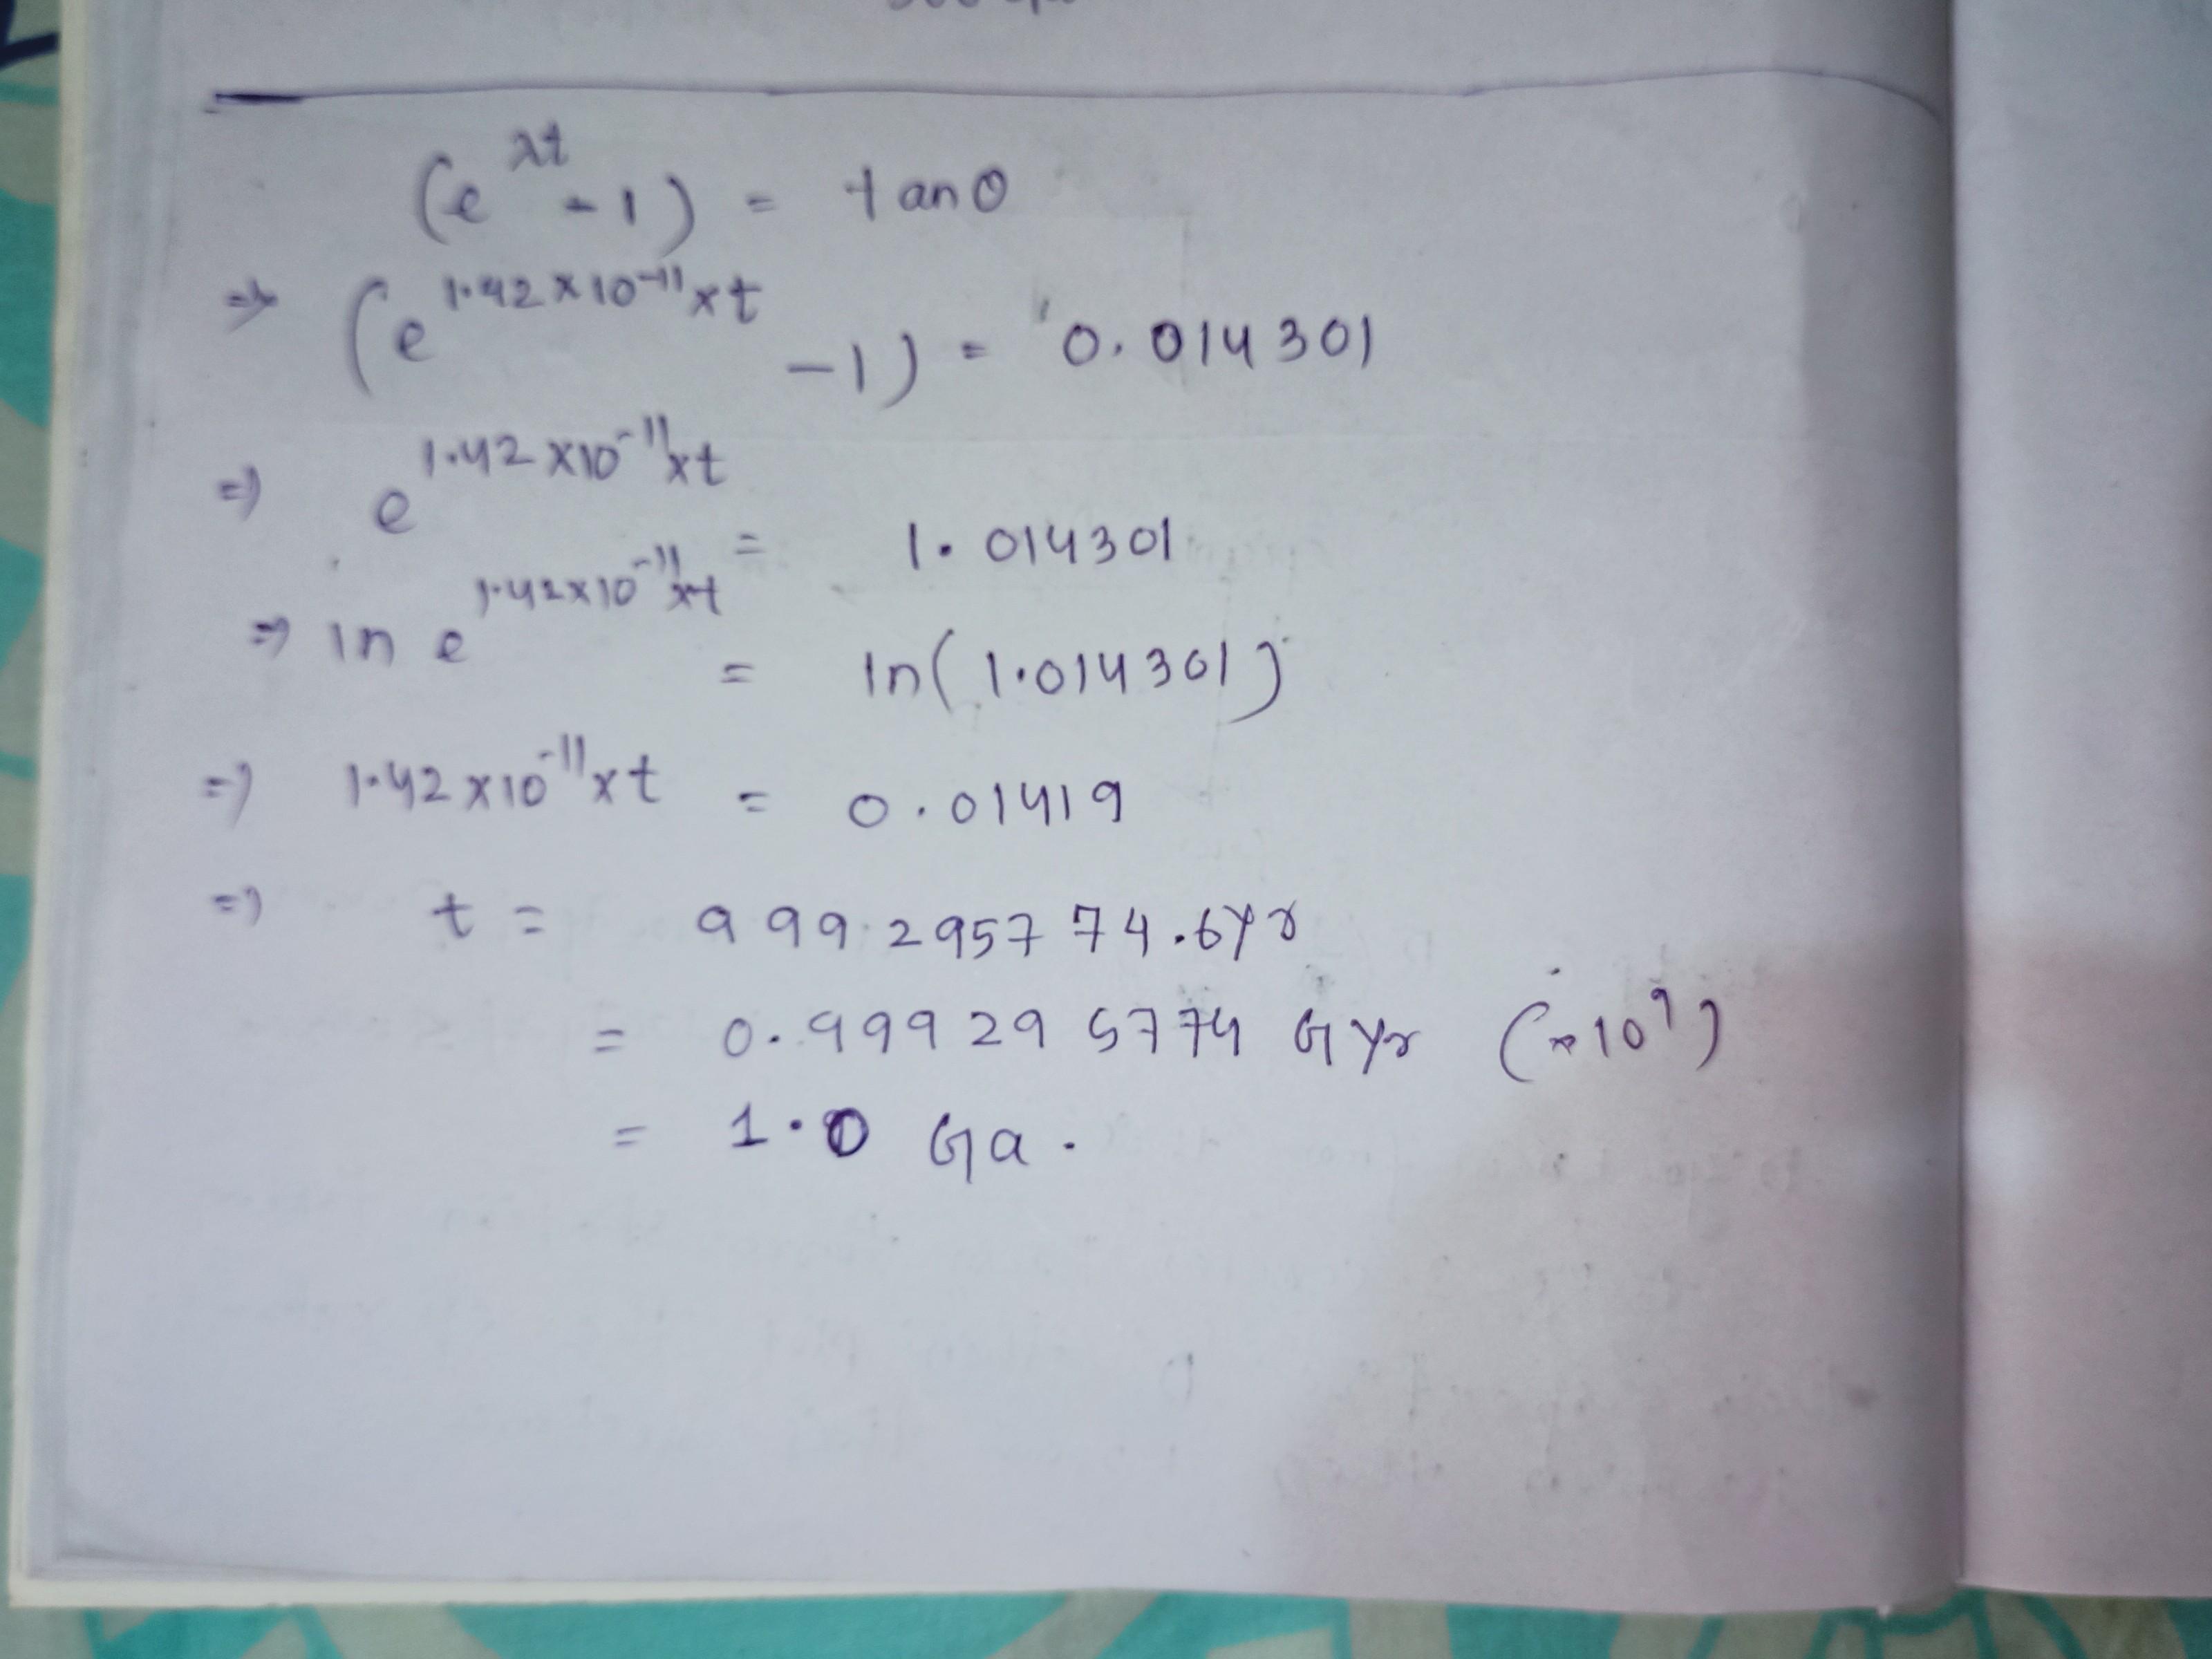 (e^λt - 1) = tanθ
⇒ (e^1.42×10^-11×t - 1) = 0.014301
⇒ e^1.42×10^-11×t = 1.014301
⇒ ln e^1.42×10^-11×t = ln(1.014301)
⇒ 1.42×10^-11×t = 0.01419
⇒ t = 999295774.6yr
= 0.9992995774 Gyr (×10^9)
= 1.0 Ga.